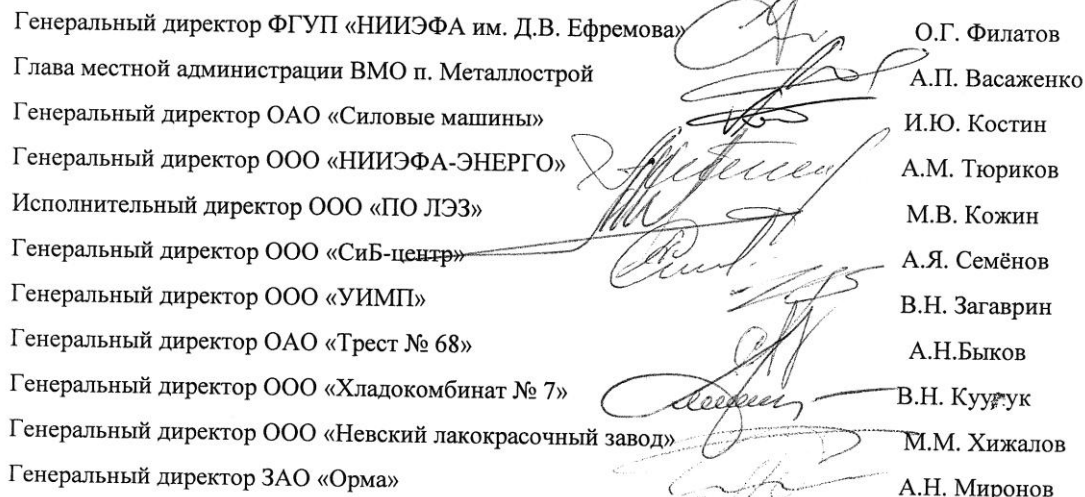 Генеральный директор ФГУП «НИИЭФА им. Д.В. Ефремова» О.Г. Филатов
Глава местной администрации ВМО п. Металлострой А.П. Васаженко
Генеральный директор ОАО «Силовые машины» И.Ю. Костин
Генеральный директор ООО «НИИЭФА-ЭНЕРГО» А.М. Тюриков
Исполнительный директор ООО «ПО ЛЭЗ» М.В. Кожин
Генеральный директор ООО «СиБ-центр» А.Я. Семёнов
Генеральный директор ООО «УИМП» В.Н. Загаврин
Генеральный директор ОАО «Трест № 68» А.Н.Быков
Генеральный директор ООО «Хладокомбинат № 7» В.Н.
Генеральный директор ООО «Невский лакокрасочный завод» М.М. Хижалов
Генеральный директор ЗАО «Орма» А.Н. Миронов